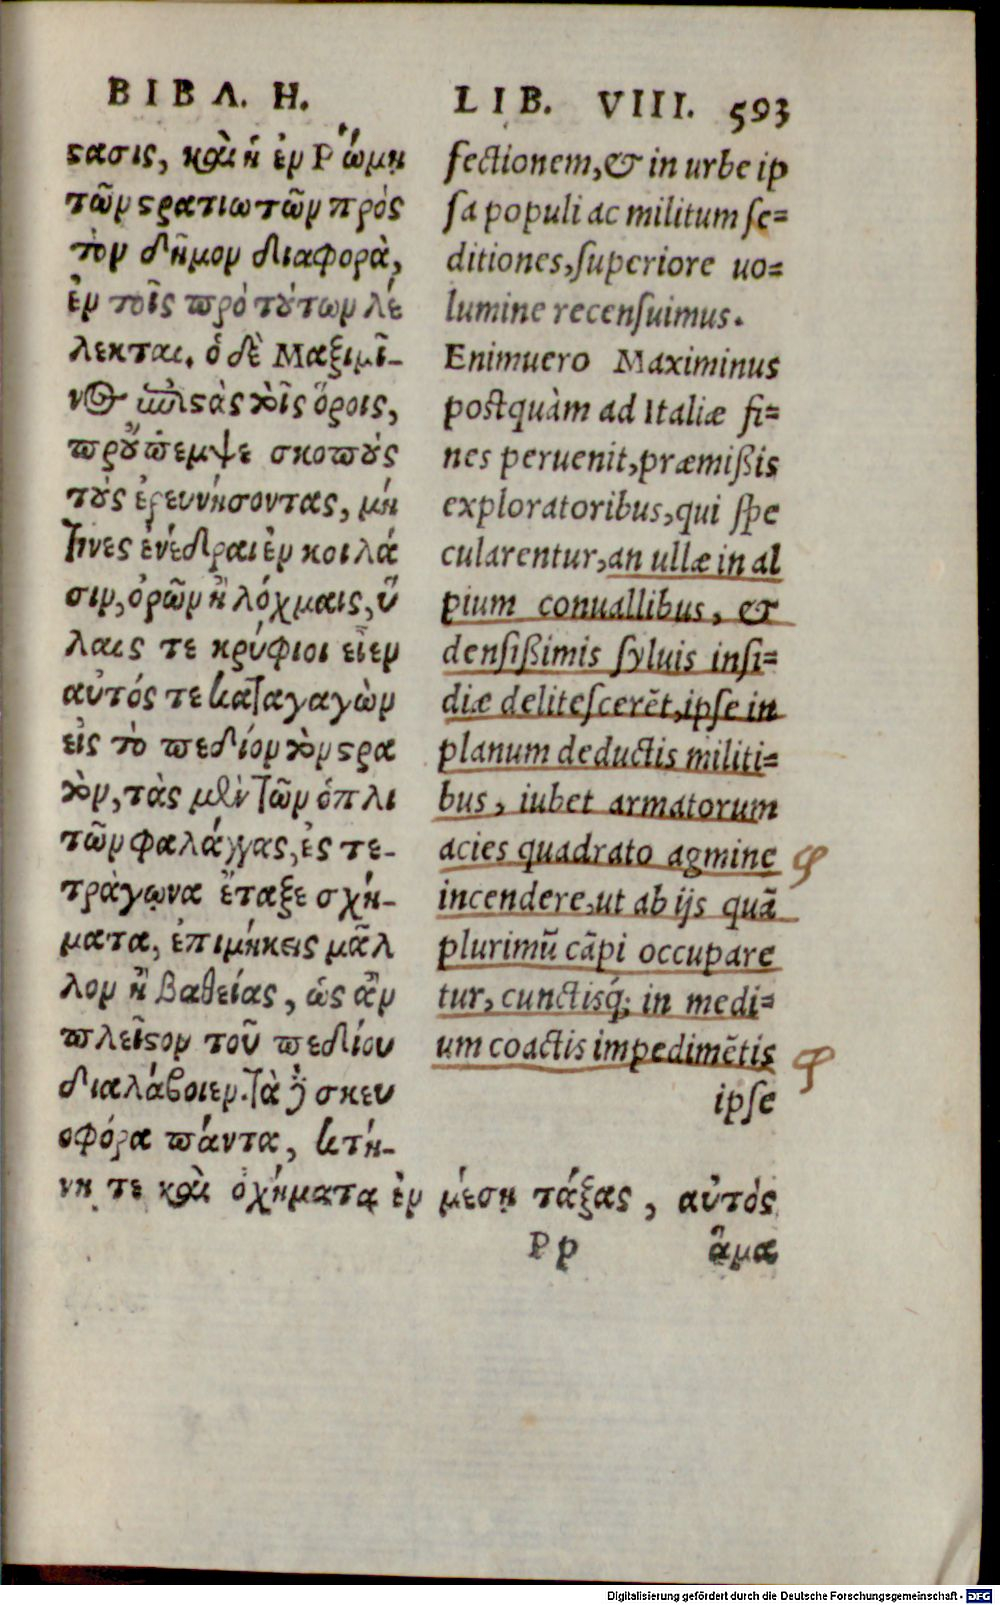 ΒΙΒΛ. Η.
ϛασις, καὶ ἡ ἐν Ῥώμῃ
τῶν ϛρατιωτῶν πρὸς
τὸν δῆμον διαφορὰ,
ἐν τοῖς πρὸ τούτων λέ
λεκται. ὁ δὲ Μαξιμῖ-
νος ἐπιϛὰς τοῖς ὅροις,
προὔπεμψε σκοποὺς
τοὺς ἐρευνήσοντας, μή
τινες ἐνέδραι ἐν κοιλά
σιν, ὀρῶν ἢ λόχμαις, ὕ
λαις τε κρύφιοι εἶεν
αὐτός τε καταγαγὼν
εἰς τὸ πεδίον τὸν ϛρα
τὸν, τὰς μὲν τῶν ὁπλι
τῶν φαλάγγας, ἐς τε-
τράγωνα ἔταξε σχή-
ματα, ἐπιμήκεις μᾶλ
λον ἢ βαθείας, ὡς ἂν
πλεῖϛον τοῦ πεδίου
διαλάβοιεν. τὰ δὲ σκευ
οφόρα πάντα, κτή-
νη τε καὶ ὀχήματα ἐν μέσῃ τάξας, αὐτὸς
LIB. VIII. 593
fectionem, & in urbe ip
sa populi ac militum se=
ditiones, superiore uo=
lumine recensuimus.
Enimuero Maximinus
postquàm ad Italiæ fi=
nes peruenit, præmißis
exploratoribus, qui spe
cularentur, an ullæ in al
pium conuallibus, &
densißimis syluis insi=
diæ delitescerẽt, ipse in
planum deductis militi=
bus, iubet armatorum
acies quadrato agmine
incendere, ut ab ijs quã
plurimũ cãpi occupare
tur, cunctisq́; in medi=
um coactis impedimẽtis
ipse
Pp ἅμα
Digitalisierung gefördert durch die Deutsche Forschungsgemeinschaft - DFG